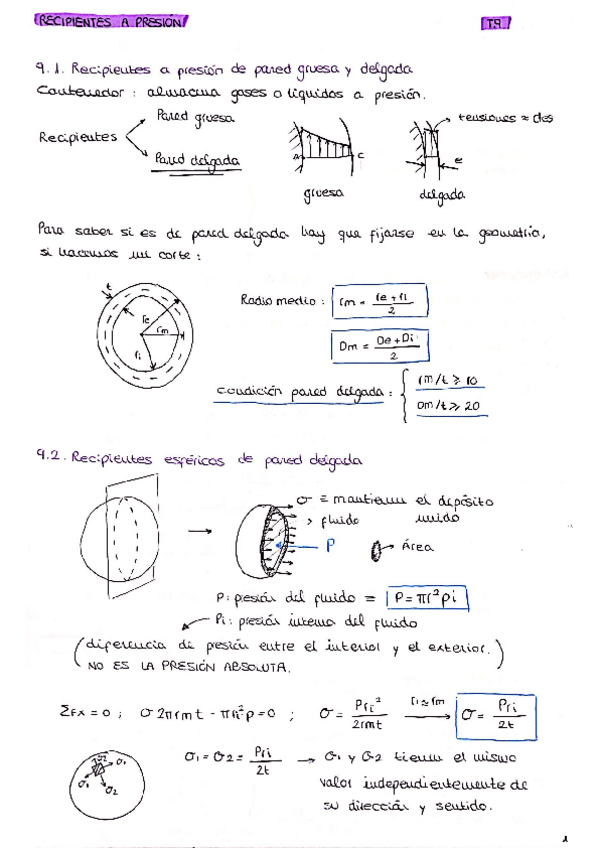 RECIPIENTES A PRESIÓN
T9
9.1. Recipientes a presión de pared gruesa y delgada
Contenedor : almacena gases o líquidos a presión.
Recipientes
Pared gruesa
Pared delgada
c
gruesa
tensiones ≈ des
e
delgada
Para saber si es de pared delgada hay que fijarse en la geometría,
si hacemos un corte :
t
re
rm
ri
Radio medio : rm = re + ri / 2
Dm = De + Di / 2
condición pared delgada : { rm/t ≥ 10
Dm/t ≥ 20
9.2. Recipientes esféricos de pared delgada
σ ≡ mantienen el depósito
unido
> fluido
P
Área
P: presión del fluido = P = πr²pi
Pi: presión interna del fluido
(diferencia de presión entre el interior y el exterior.)
NO ES LA PRESIÓN ABSOLUTA.
ΣFx = 0 ; σ 2πrmt - πri²p = 0 ; σ = Pri² / 2rmt ri≈rm → σ = Pri / 2t
σ2
σ1
σ1
σ2
σ1 = σ2 = Pri / 2t → σ1 y σ2 tienen el mismo
valor independientemente de
su dirección y sentido.
1